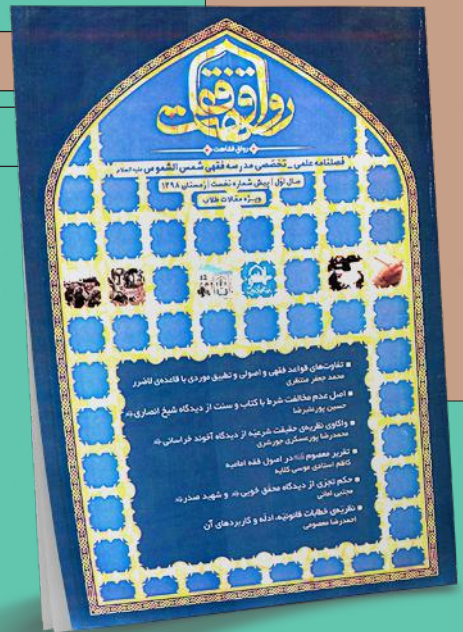 رواق فقاهت
رواق فقاهت
فصلنامه علمی - تخصصی مدرسه فقهی شمس الشموس علیه السلام
سال اول | پیش شماره نخست | زمستان ۱۳۹۸
ویژه مقالات طلاب
تفاوت‌های قواعد فقهی و اصولی و تطبیق موردی با قاعده‌ی لاضرر
محمد جعفر منتظری
اصل عدم مخالفت شرط با کتاب و سنت از دیدگاه شیخ انصاری
حسین پورعلیرضا
واکاوی نظریه‌ی حقیقت شرعیّه از دیدگاه آخوند خراسانی
محمدرضا پورعسکری جورشری
تقریر معصوم در اصول فقه امامیه
کاظم استادی موسی کلایه
حکم تجزی از دیدگاه محقق خویی و شهید صدر
مجتبی امانی
نظریه‌ی خطابات قانونیّه، ادلّه و کاربردهای آن
احمدرضا معصومی